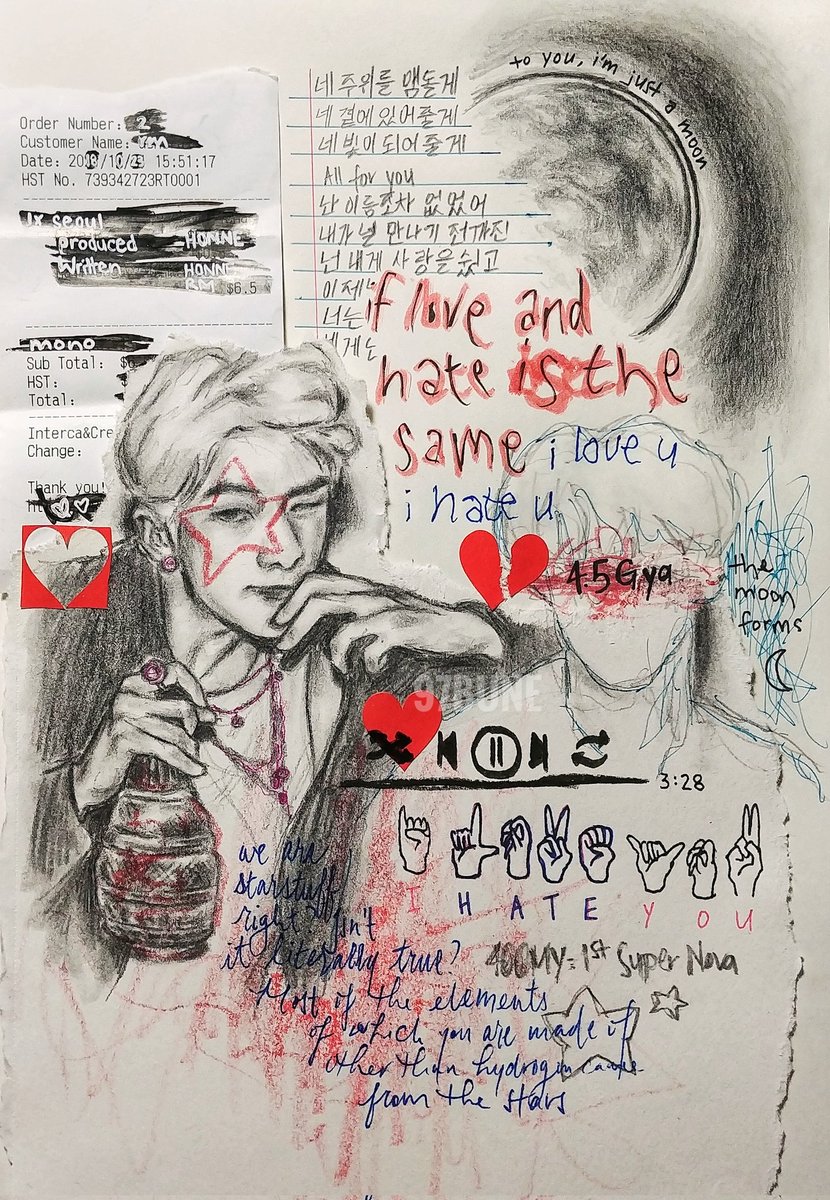 Order Number: 2
Customer Name: RM
Date: 2018/10/23 15:51:17
HST No. 739342723RT0001
1x seoul
produced HONNE
written HONNE
RM $6.5
mono
Sub Total:
HST:
Total:
Change:
Thank you!
네 주위를 맴돌게
네 곁에 있어줄게
네 빛이 되어줄게
All for you
난 이름조차 없었어
내가 널 만나기 전까진
넌 내게 사랑을 줬고
이제
너는
네게
to you, i'm just a moon
if love and
hate is the
same i love u
i hate u
4.5Gya
the
moon
forms
97BUNE
3:28
I HATE YOU
we are
starstuff
right isn't
it literally true?
Most of the elements
of which you are made of
other than hydrogen came
from the stars
400MY=1st Super Nova